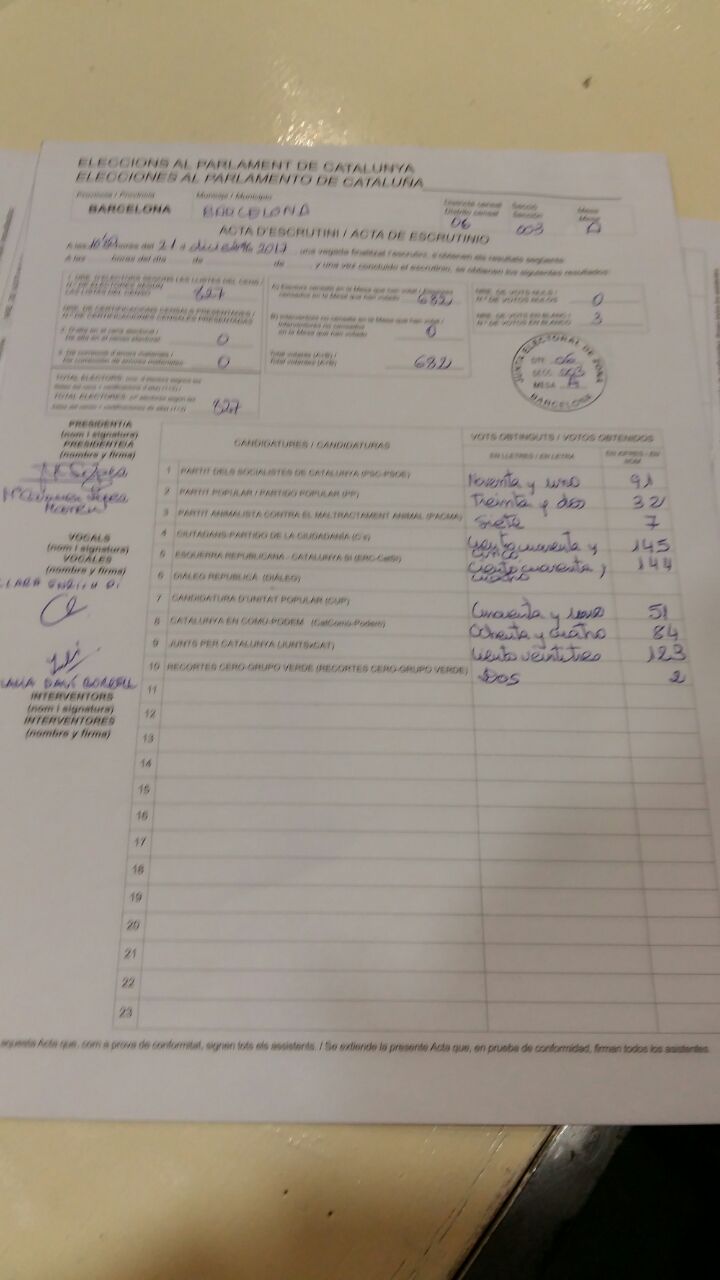 ELECCIONS AL PARLAMENT DE CATALUNYA
ELECCIONES AL PARLAMENTO DE CATALUÑA
Provincia / Provincia
Municipi / Municipio
Districte censal
Distrito censal
Secció
Sección
Mesa
Mesa
BARCELONA
BARCELONA
06
003
A
ACTA D'ESCRUTINI / ACTA DE ESCRUTINIO
A les hores del 21 d diciembre 2017, una vegada finalitzat l'escrutini, s'obtenen els resultats següents:
A las horas del día de de , y una vez concluido el escrutinio, se obtienen los siguientes resultados:
1. NRE. D'ELECTORS SEGONS LES LLISTES DEL CENS /
N.º DE ELECTORES SEGÚN
LAS LISTAS DEL CENSO
827
NRE. DE CERTIFICACIONS CENSALS PRESENTADES /
N.º DE CERTIFICACIONES CENSALES PRESENTADAS
0
0
TOTAL ELECTORS
TOTAL ELECTORES
827
A) Electors censats en la Mesa que han votat / Electores
censados en la Mesa que han votado
682
B) Interventors no censats en la Mesa que han votat /
Interventores no censados
en la Mesa que han votado
0
Total votants (A+B) /
Total votantes (A+B)
682
NRE. DE VOTS NULS /
N.º DE VOTOS NULOS
0
NRE. DE VOTS EN BLANC /
N.º DE VOTOS EN BLANCO
3
JUNTA ELECTORAL DE ZONA
DTE. 06
SECC. 003
MESA A
BARCELONA
PRESIDENT/A
(nom i signatura)
PRESIDENTE/A
(nombre y firma)
VOCALS
(nom i signatura)
VOCALES
(nombre y firma)
INTERVENTORS
(nom i signatura)
INTERVENTORES
(nombre y firma)
CANDIDATURES / CANDIDATURAS
VOTS OBTINGUTS / VOTOS OBTENIDOS
EN LLETRES / EN LETRA
EN XIFRES / EN NÚM.
1 PARTIT DELS SOCIALISTES DE CATALUNYA (PSC-PSOE) Noventa y uno 91
2 PARTIT POPULAR / PARTIDO POPULAR (PP) Treinta y dos 32
3 PARTIT ANIMALISTA CONTRA EL MALTRACTAMENT ANIMAL (PACMA) Siete 7
4 CIUTADANS-PARTIDO DE LA CIUDADANÍA (C's) Ciento cuarenta y cinco 145
5 ESQUERRA REPUBLICANA - CATALUNYA SÍ (ERC-CatSí) Ciento cuarenta y cuatro 144
6 DIÀLEG REPUBLICÀ (DIÀLEG)
7 CANDIDATURA D'UNITAT POPULAR (CUP) Cincuenta y uno 51
8 CATALUNYA EN COMÚ-PODEM (CatComú-Podem) Ochenta y cuatro 84
9 JUNTS PER CATALUNYA (JUNTSxCAT) Ciento veintitres 123
10 RECORTES CERO-GRUPO VERDE (RECORTES CERO-GRUPO VERDE) Dos 2
11
12
13
14
15
16
17
18
19
20
21
22
23
aquesta Acta que, com a prova de conformitat, signen tots els assistents. / Se extiende la presente Acta que, en prueba de conformidad, firman todos los asistentes.